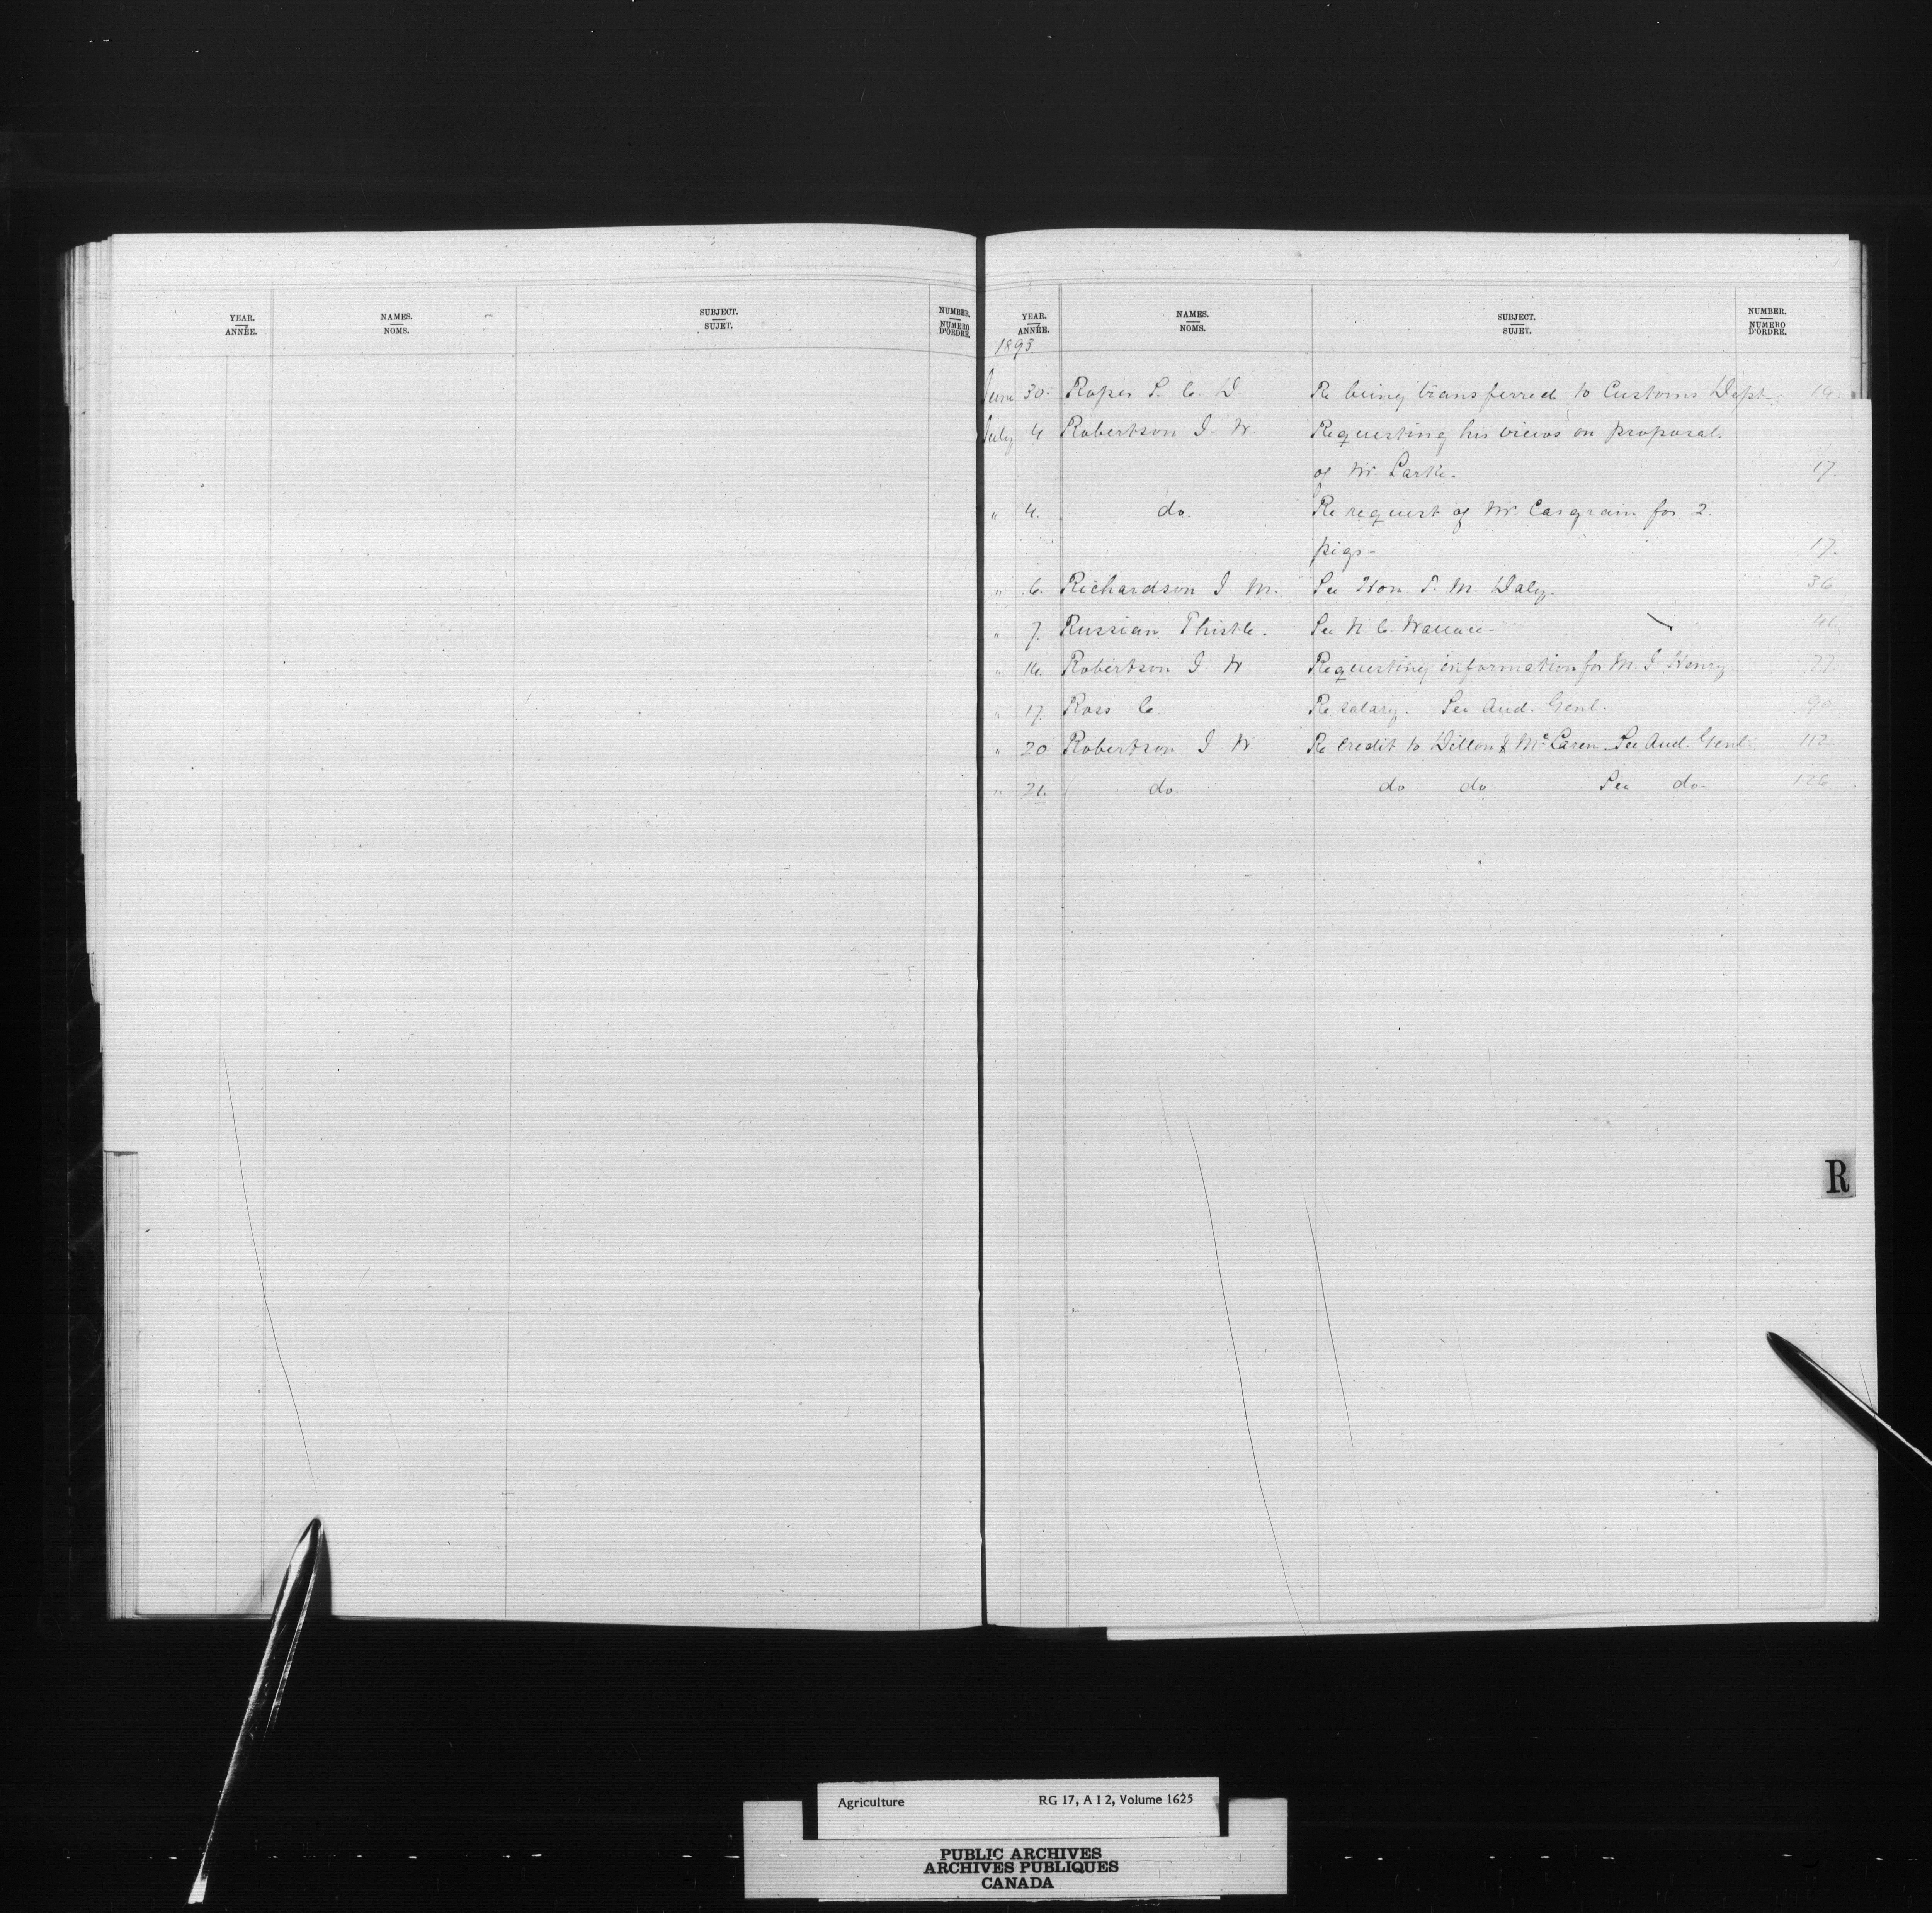 YEAR. ANNÉE. NAMES. NOMS. SUBJECT. SUJET. NUMBER. NUMERO D'ORDRE.
YEAR. ANNÉE. NAMES. NOMS. SUBJECT. SUJET. NUMBER. NUMERO D'ORDRE.
1893
June 30. Roper S. C. D. Re being transferred to Customs Dept.
July 4 Robertson J. W. Requesting his views on proposal
of Mr. Larke. 17.
" 4. do. Re request of Mr. Casgrain for 2.
pigs - 17.
" 6. Richardson J. M. See Hon. T. M. Daly. 36
" 7. Russian Thistle. See N. C. Wallace -
" 14. Robertson J. W. Requesting information for M. J. Henry 77.
" 17. Ross C. Re salary. See Aud. Genl. 90
" 20 Robertson J. W. Re credit to Dillon & McLaren. See Aud. Genl. 112
" 21. do. do do. See do- 126
R
Agriculture RG 17, A I 2, Volume 1625
PUBLIC ARCHIVES
ARCHIVES PUBLIQUES
CANADA